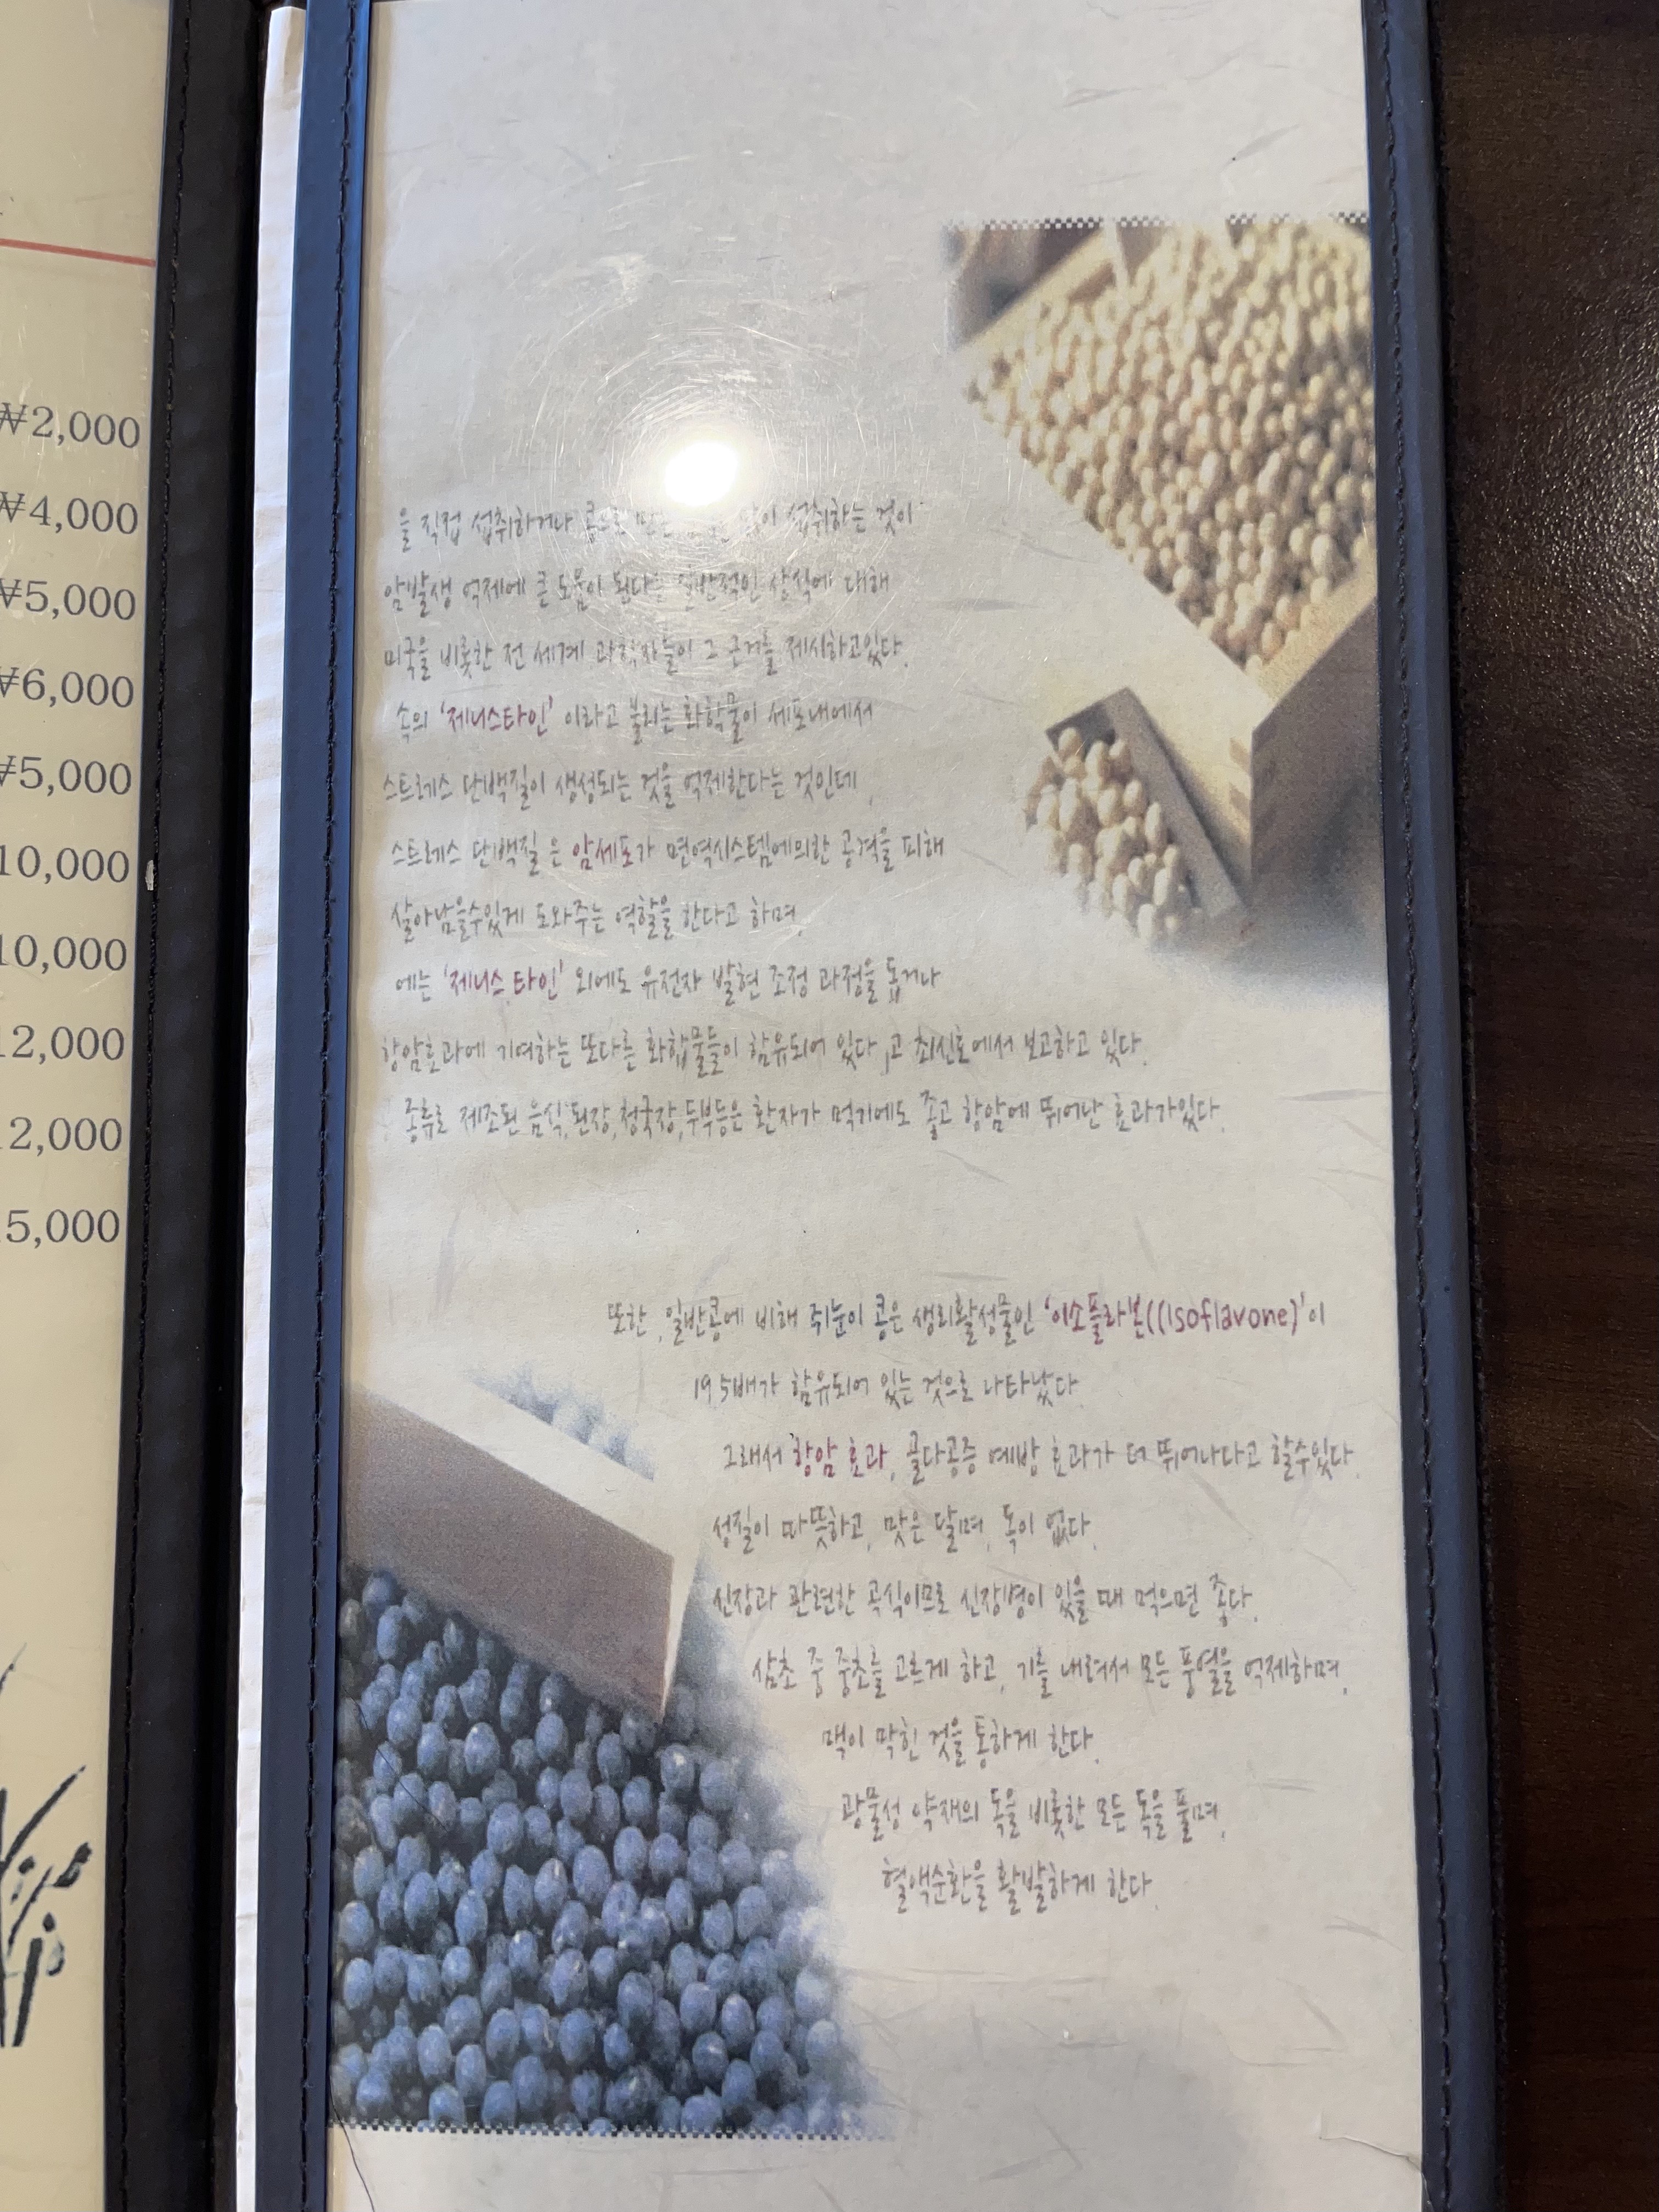 ₩2,000
₩4,000
₩5,000
₩6,000
₩5,000
10,000
10,000
12,000
12,000
15,000
을 직접 섭취하거나 콩으로 만든 많이 섭취하는 것이
암발생 억제에 큰 도움이 된다는 일반적인 상식에 대해
미국을 비롯한 전 세계 과학자들이 그 근거를 제시하고있다.
속의 '제니스타인' 이라고 불리는 화학물이 세포내에서
스트레스 단백질이 생성되는 것을 억제한다는 것인데,
스트레스 단백질 은 암세포가 면역시스템에의한 공격을 피해
살아남을수있게 도와주는 역할을 한다고 하며,
에는 '제니스 타인' 외에도 유전자 발현 조정 과정을 돕거나
항암효과에 기여하는 또다른 화합물들이 함유되어 있다,고 최신호에서 보고하고 있다.
종류로 제조된 음식,된장,청국장,두부등은 환자가 먹기에도 좋고 항암에 뛰어난 효과가있다.
또한 ,일반콩에 비해 쥐눈이 콩은 생리활성물인 '이소플라본((Isoflavone)'이
19.5배가 함유되어 있는 것으로 나타났다.
그래서 항암 효과, 골다공증 예방 효과가 더 뛰어나다고 할수있다.
성질이 따뜻하고, 맛은 달며, 독이 없다.
신장과 관련한 곡식이므로 신장병이 있을 때 먹으면 좋다.
삼초 중 중초를 고르게 하고, 기를 내려서 모든 풍열을 억제하며,
맥이 막힌 것을 통하게 한다.
광물성 약재의 독을 비롯한 모든 독을 풀며,
혈액순환을 활발하게 한다.